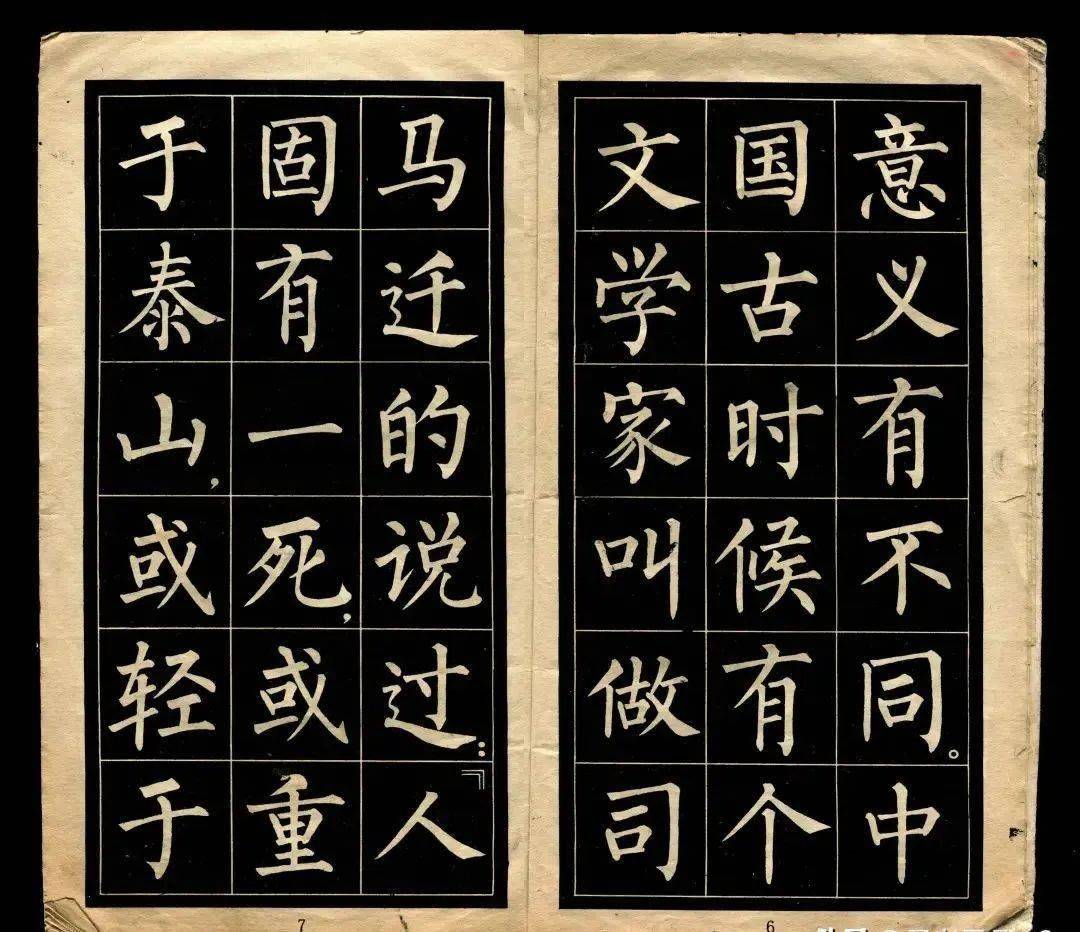 意义有不同。中
国古时候有个
文学家叫做司
6
马迁的说过：『人
固有一死，或重
于泰山，或轻于
7